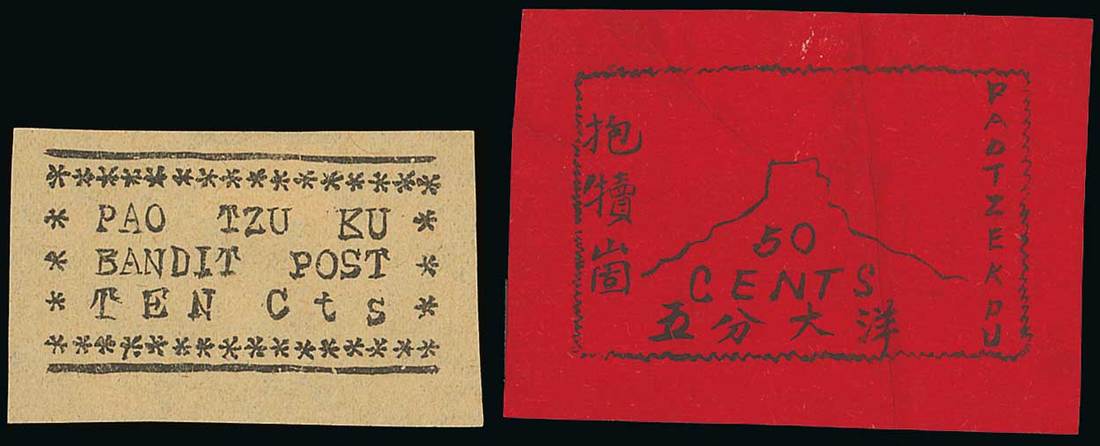 PAO TZU KU
BANDIT POST
TEN Cts
抱犢崮
50
CENTS
五分大洋
PAOTZEKOU